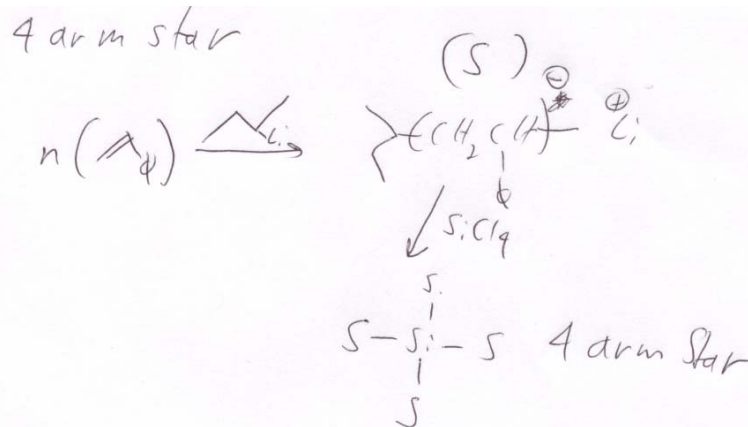 4 arm star
(S) ⊖
n( φ) Li (CH2CH) ⊕ Li
φ
SiCl4
S
S-Si-S 4 arm Star
S